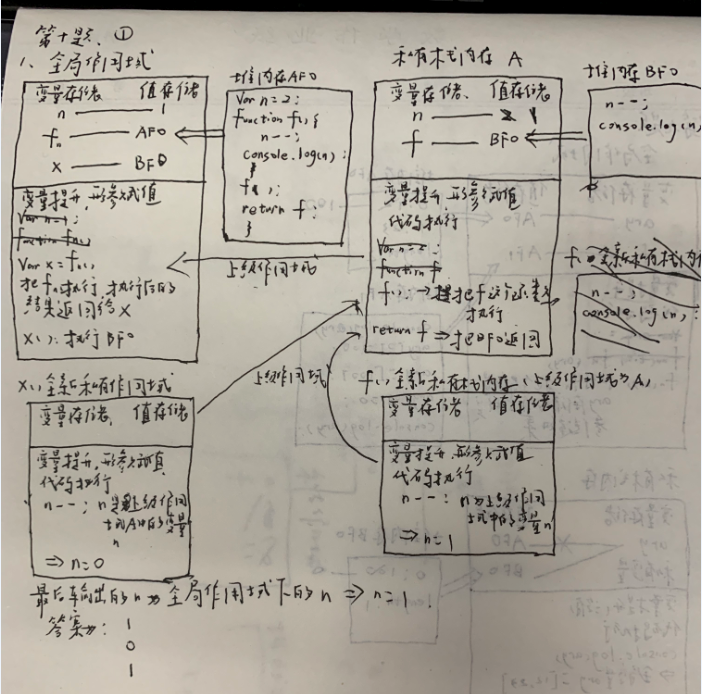 第十题、①
1、全局作用域
变量存储 值存储
n —— 1
fn —— AF0
x —— BF0
变量提升,形参赋值
Var n=1;
function fn()
Var x = fn();
把fn执行,执行后的
结果返回给x
x(): 执行BF0
堆内存AF0
Var n=2;
function f() {
n--;
console.log(n);
}
f();
return f;
}
上级作用域
私有栈内存 A
变量存储、 值存储
n —— 2 1
f —— BF0
变量提升,形参赋值
代码执行
Var n=2;
function f
f(); →
执行
return f ⇒ 把BF0返回
堆内存BF0
n--;
console.log(n);
f() 全新私有栈内存
n--;
console.log(n);
x() 全新私有作用域
变量存储、 值存储
变量提升,形参赋值
代码执行
n--; n是上级作用
域A中的变量
n
⇒ n=0
上级作用域
f() 全新私有栈内存(上级作用域为A)
变量存储 值存储
变量提升,形参赋值
代码执行
n--: n为上级作用
域中的变量n
⇒ n=1
最后输出的n为全局作用域下的n ⇒ n=1
答案为: 1
0
1